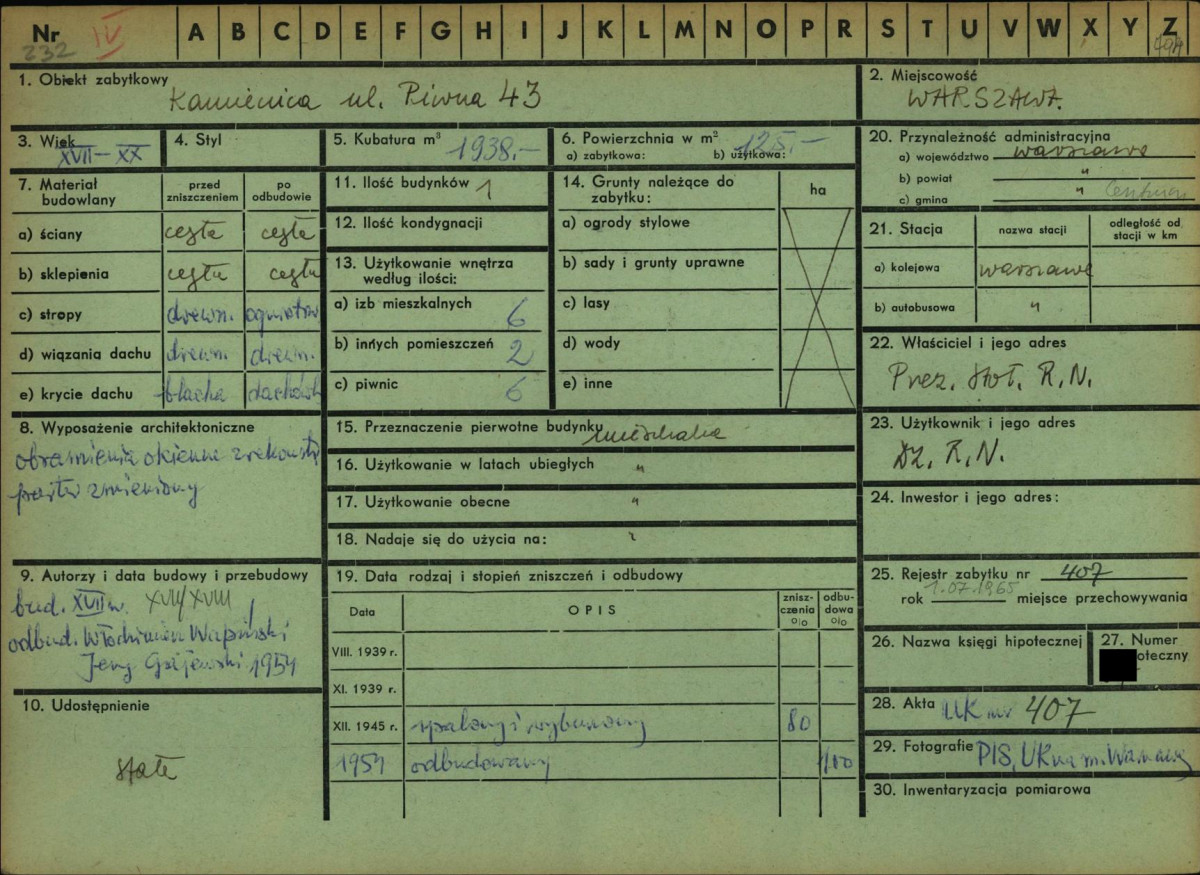 Nr IV A B C D E F G H I J K L M N O P R S T U V W X Y Z
232
1. Obiekt zabytkowy Kamienica ul. Piwna 43
2. Miejscowość
WARSZAWA.
3. Wiek
XVII – XX
4. Styl
5. Kubatura m³ 1938.-
6. Powierzchnia w m² 125.-
a) zabytkowa: b) użytkowa:
20. Przynależność administracyjna
a) województwo warszawa
b) powiat "
c) gmina " Centrum
7. Materiał budowlany
przed zniszczeniem
po odbudowie
a) ściany cegła cegła
b) sklepienia cegła cegła
c) stropy drewn. ogniotrw
d) wiązania dachu drewn. drewn.
e) krycie dachu blacha dachówk
11. Ilość budynków 1
12. Ilość kondygnacji
13. Użytkowanie wnętrza
według ilości:
a) izb mieszkalnych 6
b) innych pomieszczeń 2
c) piwnic 6
14. Grunty należące do
zabytku:
ha
a) ogrody stylowe
b) sady i grunty uprawne
c) lasy
d) wody
e) inne
21. Stacja
nazwa stacji
odległość od
stacji w km
a) kolejowa warszawa
b) autobusowa "
22. Właściciel i jego adres
Prez. Stoł. R.N.
8. Wyposażenie architektoniczne
obramienia okienne zrekonstr
portal zmieniony
15. Przeznaczenie pierwotne budynku mieszkalne
16. Użytkowanie w latach ubiegłych "
17. Użytkowanie obecne "
18. Nadaje się do użycia na: "
23. Użytkownik i jego adres
Dz. R.N.
24. Inwestor i jego adres:
9. Autorzy i data budowy i przebudowy
bud. XVII w. XVII/XVIII
odbud. Włodzimierz Wapiński
Jerzy Gajewski 1954
10. Udostępnienie
stałe
19. Data rodzaj i stopień zniszczeń i odbudowy
Data
OPIS
znisz-
czenia
%
odbu-
dowa
%
VIII. 1939 r.
XI. 1939 r.
XII. 1945 r. spalony i wyburzony 80
1954 odbudowany 100
25. Rejestr zabytku nr 407
rok 1.07.1965 miejsce przechowywania
26. Nazwa księgi hipotecznej
27. Numer
oteczny
28. Akta UK nr 407
29. Fotografie PIS, UK na m. Warszawę
30. Inwentaryzacja pomiarowa